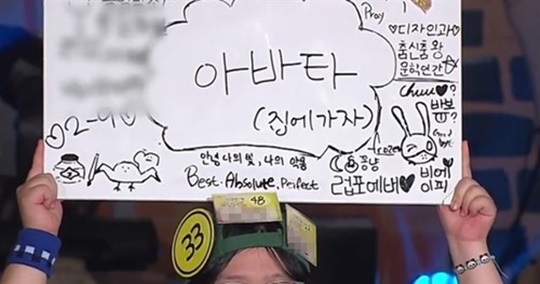 Pray
♡디자인과
춤신춤왕
문학인간
아바타
(집에가자)
Chuu♥?
바봉
2-9
안녕 나의 빛, 나의 악몽
Best. Absolute, Perfect
꽁냥
럽포에버♥
비에
이피
48
33